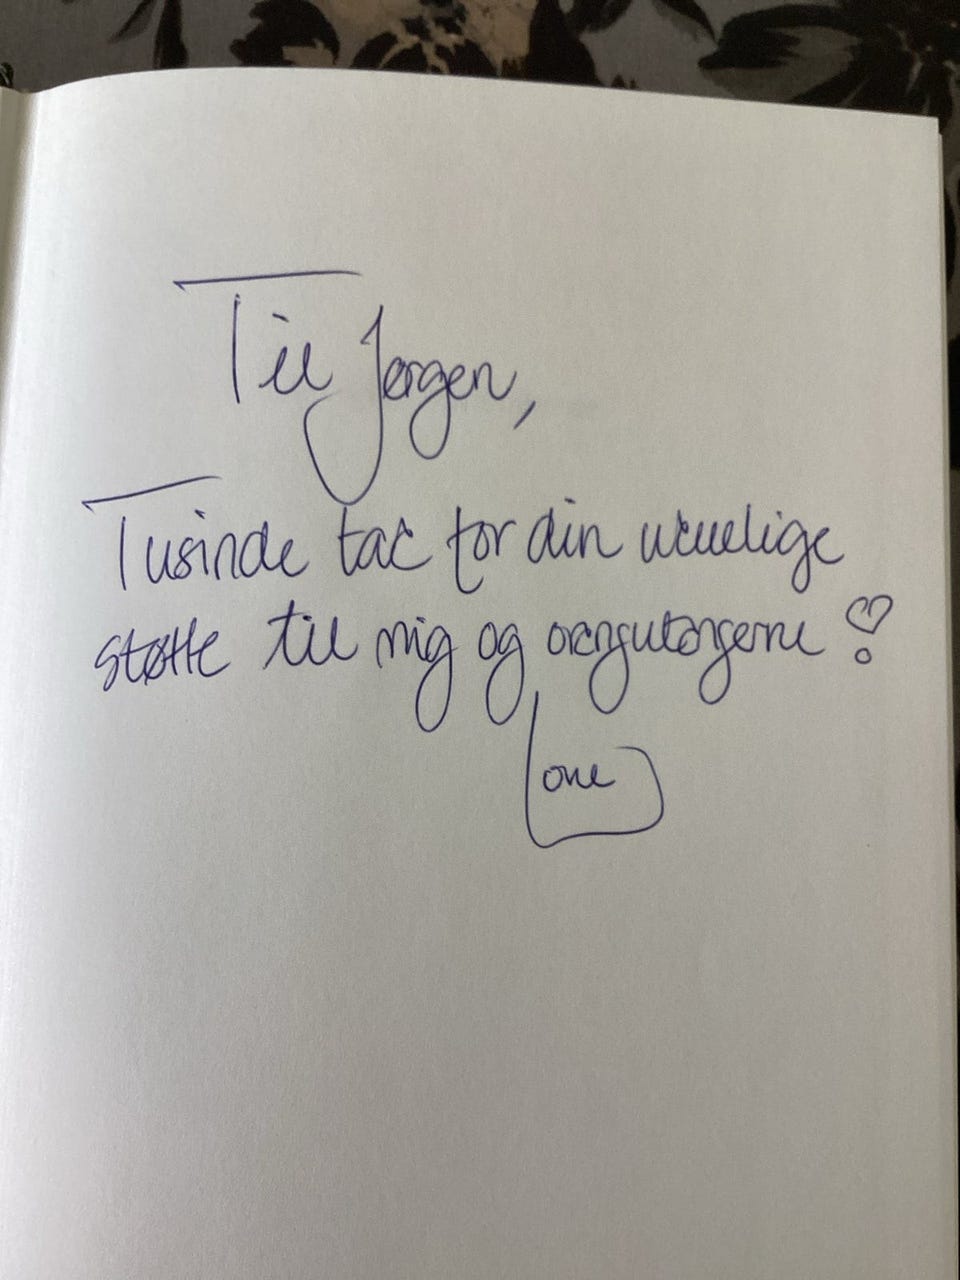 Til Jørgen,
Tusinde tak for din utrolige
støtte til mig og orangutangerne
Lone